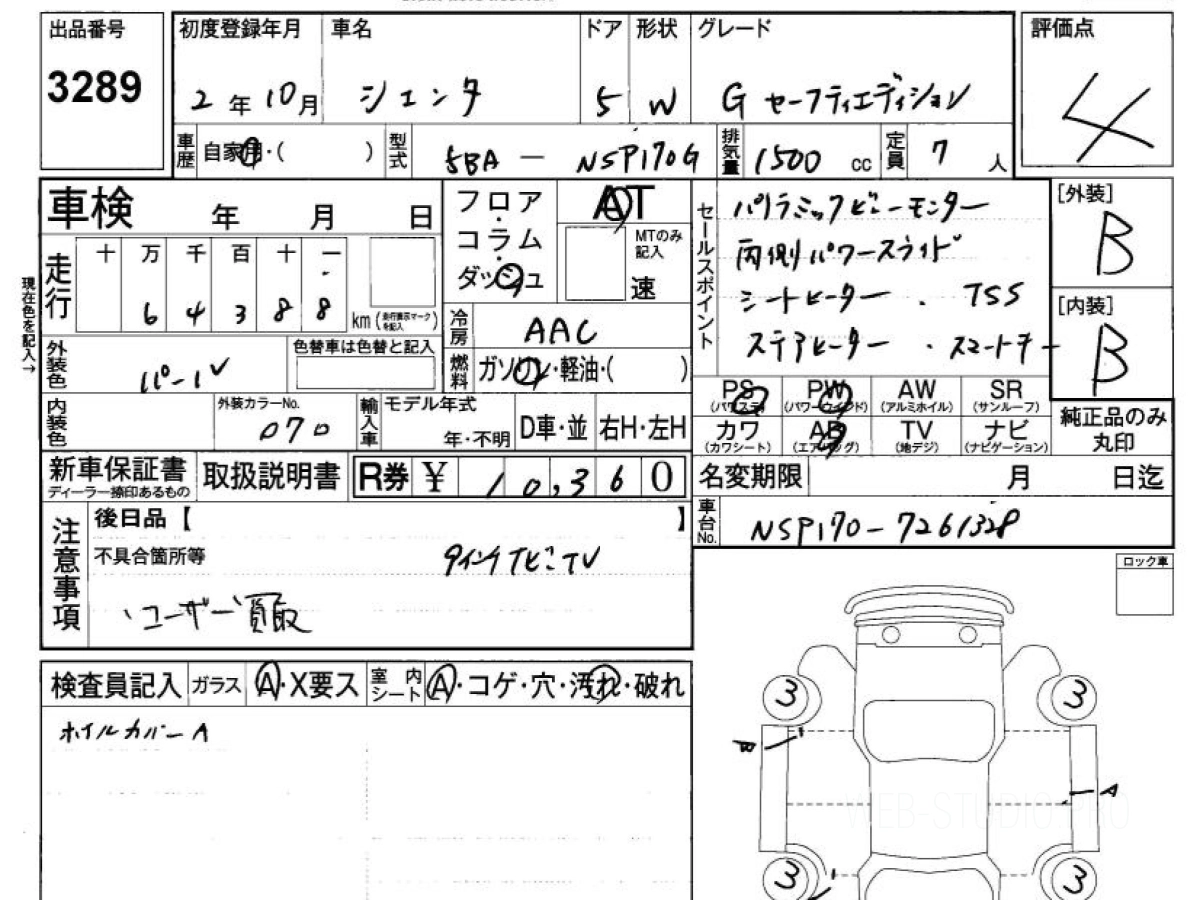 出品番号
3289
初度登録年月
2年10月
車名
シエンタ
ドア
5
形状
W
グレード
G セーフティエディション
評価点
4
車歴
自家用・( )
型式
5BA - NSP170G
排気量
1500 cc
定員
7 人
車検 年 月 日
走行
十 万 千 百 十 一
6 4 3 8 8 km
(走行表示マークを記入)
現在色を記入→
外装色
パール
色替車は色替と記入
内装色
外装カラーNo.
070
フロア・コラム・ダッシュ
AT
MTのみ記入
速
冷房
AAC
燃料
ガソリン・軽油・( )
輸入車
モデル年式
年・不明
D車・並
右H・左H
セールスポイント
パノラミックビューモニター
両側パワースライド
シートヒーター ・ TSS
ステアヒーター ・スマートキー
[外装]
B
[内装]
B
PS
(パワステ)
PW
(パワーウインド)
AW
(アルミホイル)
SR
(サンルーフ)
カワ
(カワシート)
AB
(エアバッグ)
TV
(地デジ)
ナビ
(ナビゲーション)
純正品のみ
丸印
新車保証書
ディーラー捺印あるもの
取扱説明書
R券 ¥ 10,360
名変期限 月 日迄
車台No.
NSP170-7261328
注意事項
後日品【 】
不具合箇所等
9インチナビTV
ユーザー買取
ロック車
検査員記入
ガラス
A・X要ス
室内シート
A・コゲ・穴・汚れ・破れ
ホイルカバーA
3
3
B
A
3
3
WEB-STUDIO.PRO